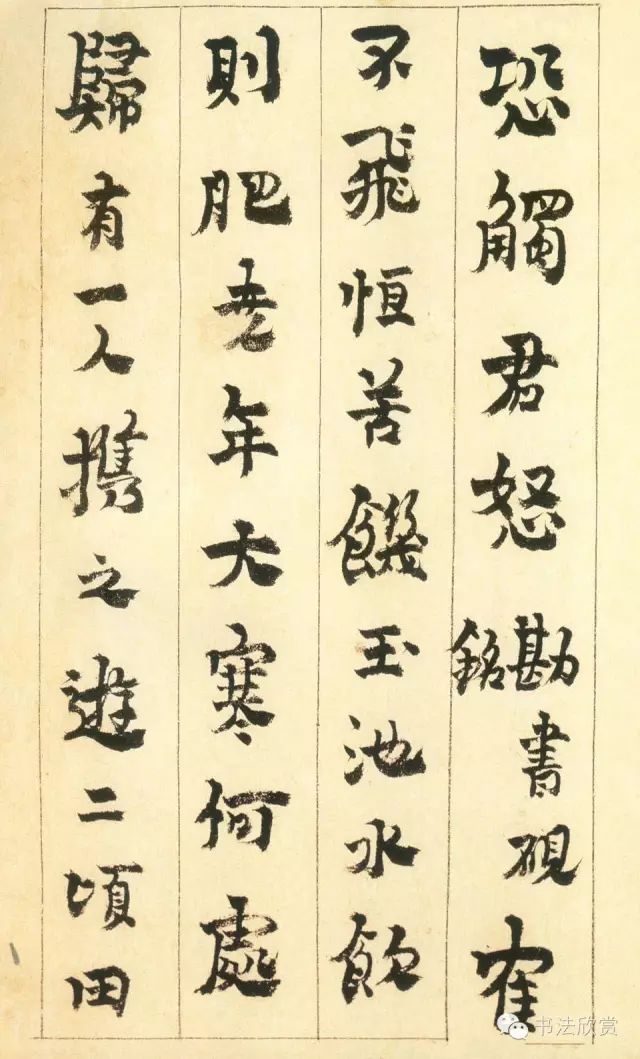 恐觸君怒勘書硯銘隺
不飛恒苦饑玉池水飲
則肥年大寒何處
歸有一人攜之遊二頃田
书法欣赏